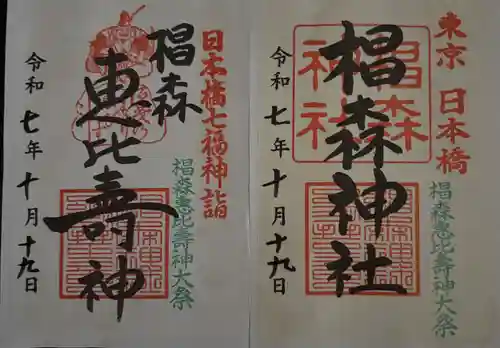 東京 日本橋
椙森惠比壽神大祭
椙森神社
椙森神社
令和七年十月十九日
日本橋七福神詣
椙森惠比壽神大祭
椙森
恵比壽神
令和七年十月十九日